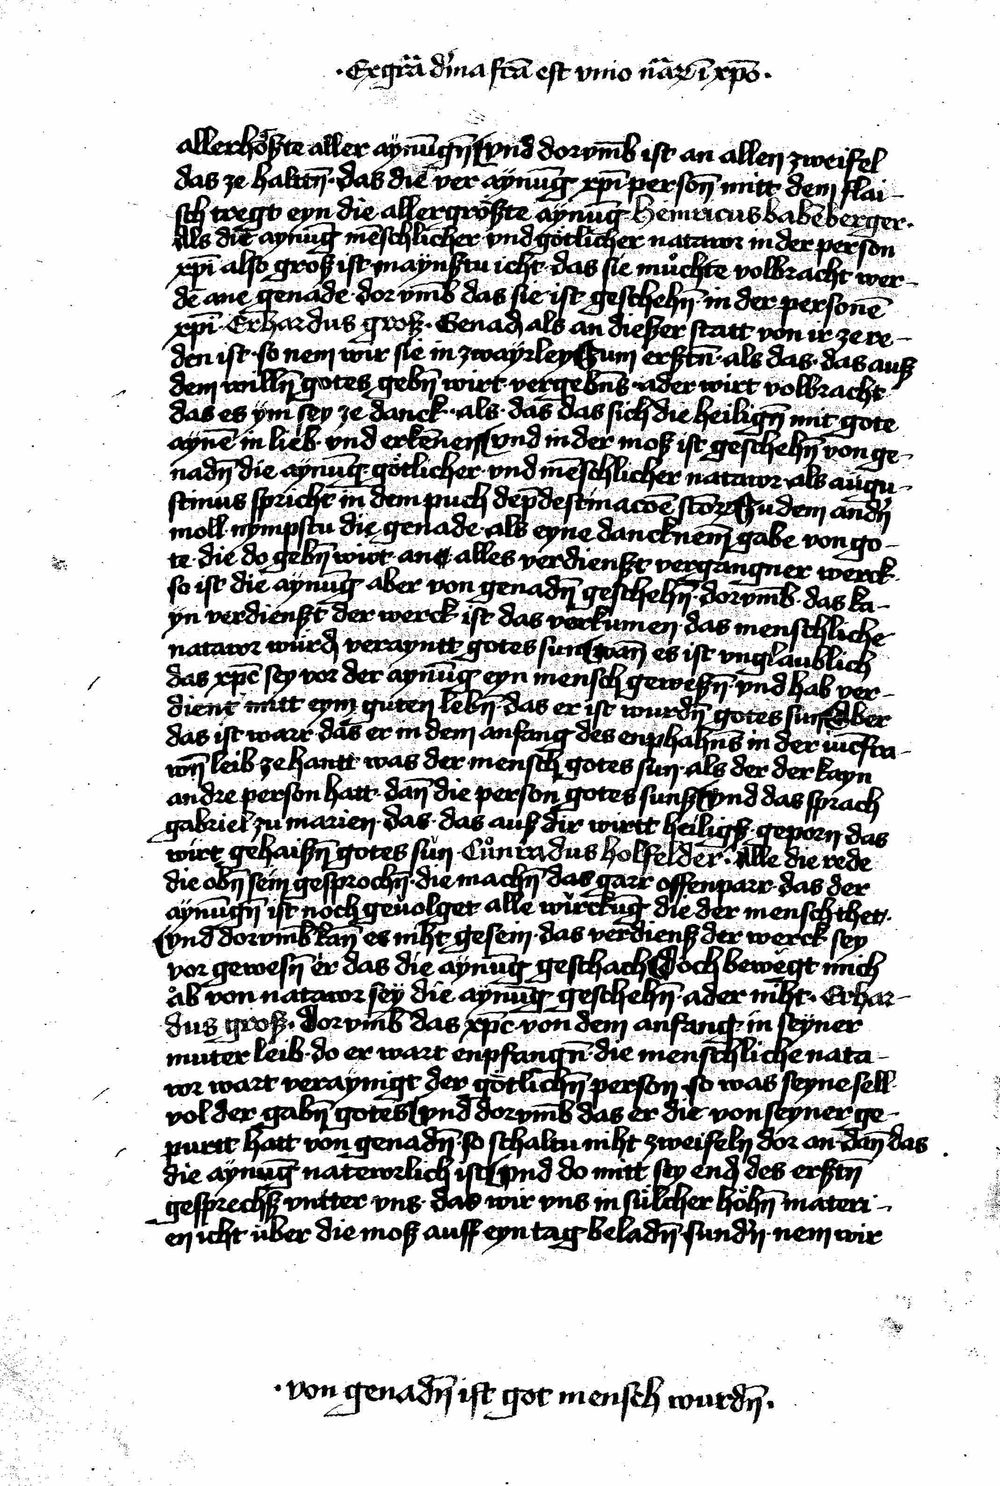 ·Ex gr̃a diuina fc̃a est vnio nãr̃ ĩ xp̃o·
allerhöszte aller aynũgñ Vnd dorvm̃b ist an allen zweifel
das ze haltñ· das die ver aynũg xp̃i person̄ mitt dem flai-
sch tregt eyn die allergröszte aynũg Heinricus babẽberger·
Als die aynũg mẽschlicher vnd götlicher natawr in der person
xp̃i also grosz ist maynstu icht· das sie můchte volbracht wer-
dẽ ane genade· dorvm̃b das sie ist geschehñ in der personẽ
xp̃i· Erhardus grosz· Genad als an dieszer statt von ir ze re-
den ist· so nem wir sie in zwayrley Zum ersztñ· als das· das ausz
dem willñ gotes gebñ wirt vergebñs· ader wirt volbracht
das es ym sey ze danck· als· das das sich die heiligñ mit gote
aynẽ in lieb· vnd erkẽnen Vnd in der mosz ist geschehñ von ge-
nadñ die aynũg götlicher· vnd mẽschlicher natawr· als augu-
stinus spricht in dem puch de p̃destinacõe sctõr̃ Zu dem andñ
moll· nympstu die genade· als eyne dancknem gabe von go-
te· die do gebñ wirt· ane alles verdienszt vergangner werck·
so ist die aynũg aber von genadñ geschehñ· dorvm̃b· das ka-
yn verdienszt der werck ist das vorkumen· das menschliche
natawr würd verayntt gotes sun wañ es ist vnglaublich
das xp̃c sey vor der aynũg eyn mensch geweszñ· vnd hab ver-
dient mitt eym guten lebñ· das er ist wurdñ gotes sun Aber
das ist warr· das er in dem anfang des enphahñs in der iũcfra-
wñ leib· ze hantt was der mensch gotes sun· als der der kayn
andre person hatt· dañ die person gotes sunsz Vnd das sprach
gabriel zu marien· das· das ausz dir wirtt heiligsz· geporn das
wirt gehaiszñ gotes sun· Cůnradus holfelder· Alle die rede
die obñ sein gesprochñ· die machñ das garr offenparr· das der
aynũgñ ist noch geuolget alle würckũg die der mensch thet·
Vnd dorvm̃b kañ es niht gesein· das verdiensz der werck sey
vor gewesñ er das die aynũg geschach Doch bewegt mich
ab von natawr sey die aynũg geschehñ· ader niht· Erhar-
dus grosz· Dorvm̃b das xp̃c von dem anfang in seyner
muter leib· do er wart enpfangñ· die menschliche nata-
wr wart veraynigt der götlichñ person· so was seyne sell
vol der gabñ gotes Vnd dorvm̃b das er die von seyner ge-
purtt hatt von genadñ· so schaltu niht zweifeln dor an· dañ das
die aynũg natewrlich ist Vnd do mitt sey end des ersztñ
gesprechsz vntter vns· das wir vns in sülcher höhñ materi-
en icht über die mosz auff eyn tag beladñ· sundñ· nem wir
·von genadñ ist got mensch wurdñ·